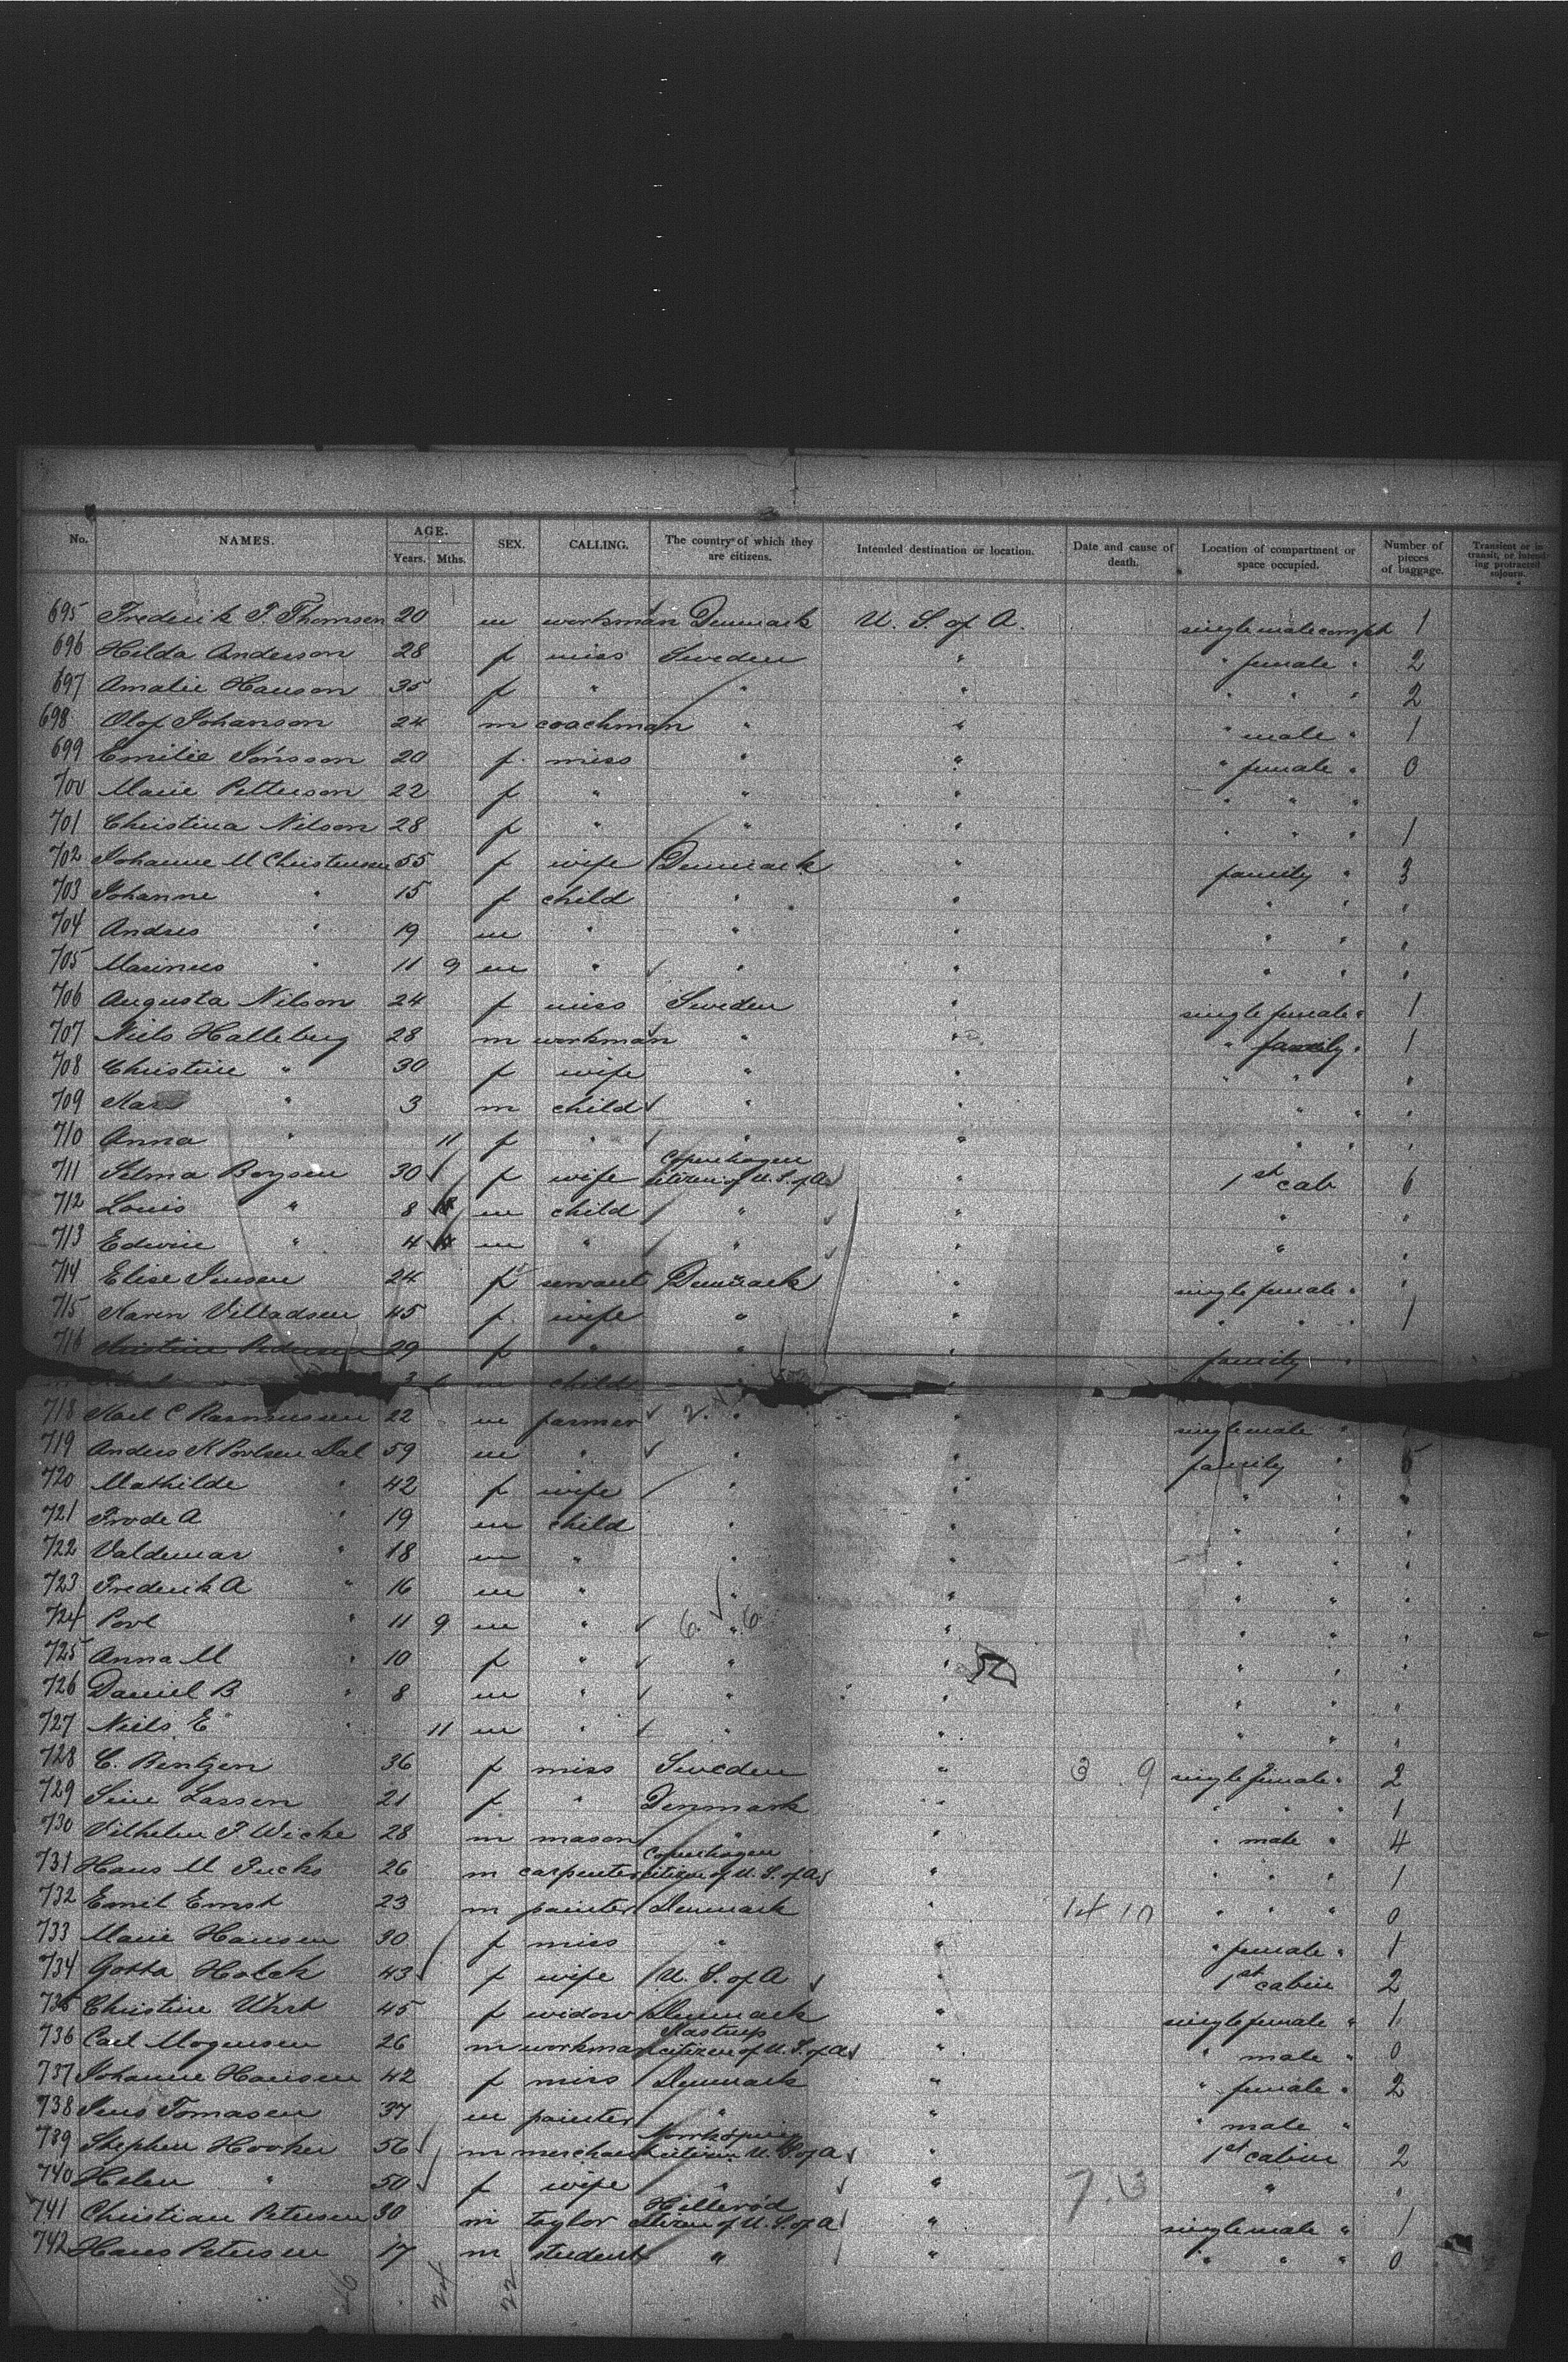 No. NAMES. AGE. Years. Mths. SEX. CALLING. The country of which they are citizens. Intended destination or location. Date and cause of death. Location of compartment or space occupied. Number of pieces of baggage. Transient or in transit, or intending protracted sojourn.
695 Frederik F. Thomsen 20 m workman Denmark U. S. of A. single male compt 1
696 Hilda Anderson 28 f miss Sweden " " female " 2
697 Amalie Hanson 35 f " " " " " " 2
698 Olof Johanson 24 m coachman " " " male " 1
699 Emilie Jönsson 20 f. miss " " " female " 0
700 Marie Petterson 22 f " " " " " "
701 Christina Nilson 28 f " " " " " " 1
702 Johanne M Christensen 55 f wife Denmark " family " 3
703 Johanne " 15 f child " " " " "
704 Andres " 19 m " " " " " "
705 Marinus " 11 9 m " " " " " "
706 Augusta Nilson 24 f miss Sweden " single female " 1
707 Niels Halleberg 28 m workman " " " family " 1
708 Christine " 30 f wife " " " " "
709 " 3 m child " " " " "
710 Anna " 11 f " " " " " "
711 Selma Boysen 30 f wife Copenhagen citizen of U. S. of A " 1st cab 6
712 Louis " 8 m child " " " "
713 Edwin " 4 m " " " " "
714 Elise Jensen 24 f servant Denmark " single female " "
715 Karen Villadsen 45 f wife " " " " " 1
716 Kristine Pedersen 29 f " " " family "
3 m child " "
718 Karl C Rasmussen 22 m farmer " " single male "
719 Anders K Povlsen Dal 59 m " " " family " 5
720 Mathilde " 42 f wife " " " " "
721 Frode A " 19 m child " " " " "
722 Valdemar " 18 m " " " " " "
723 Frederik A " 16 m " " " " " "
724 Povl " 11 9 m " 6 " 6 " " " "
725 Anna M " 10 f " " " " " "
726 Daniel B " 8 m " " " " " "
727 Niels E " 11 m " " " " " "
728 C. Bentzen 36 f miss Sweden " 3 9 single female " 2
729 Sine Lassen 21 f " Denmark " " " " 1
730 Vilhelm F Wicke 28 m mason " " " male " 4
731 Hans M Fuchs 26 m carpenter Copenhagen citizen of U. S. of A " " " " 1
732 Emil Ernst 23 m painter Denmark " 14 10 " " " 0
733 Marie Hansen 30 f miss " " " female " 1
734 Holck 43 f wife U. S. of A " 1st cabin 2
735 Christine 45 f widow Denmark " single female " 1
736 Carl Mogensen 26 m workman Kastrup citizen of U. S. of A " " male " 0
737 Johanne Hansen 42 f miss Denmark " " female " 2
738 Jens Tomasen 37 m painter " " " male "
739 Stephen Hooker 56 m merchant Norrköping citizen U. S. of A " 1st cabin 2
740 Helen " 50 f wife " " 7. 3 " "
741 Christian Petersen 30 m taylor Hilleröd citizen of U. S. of A " single male " 1
742 Hans Petersen 17 m student " " " " " 0
16 24 22